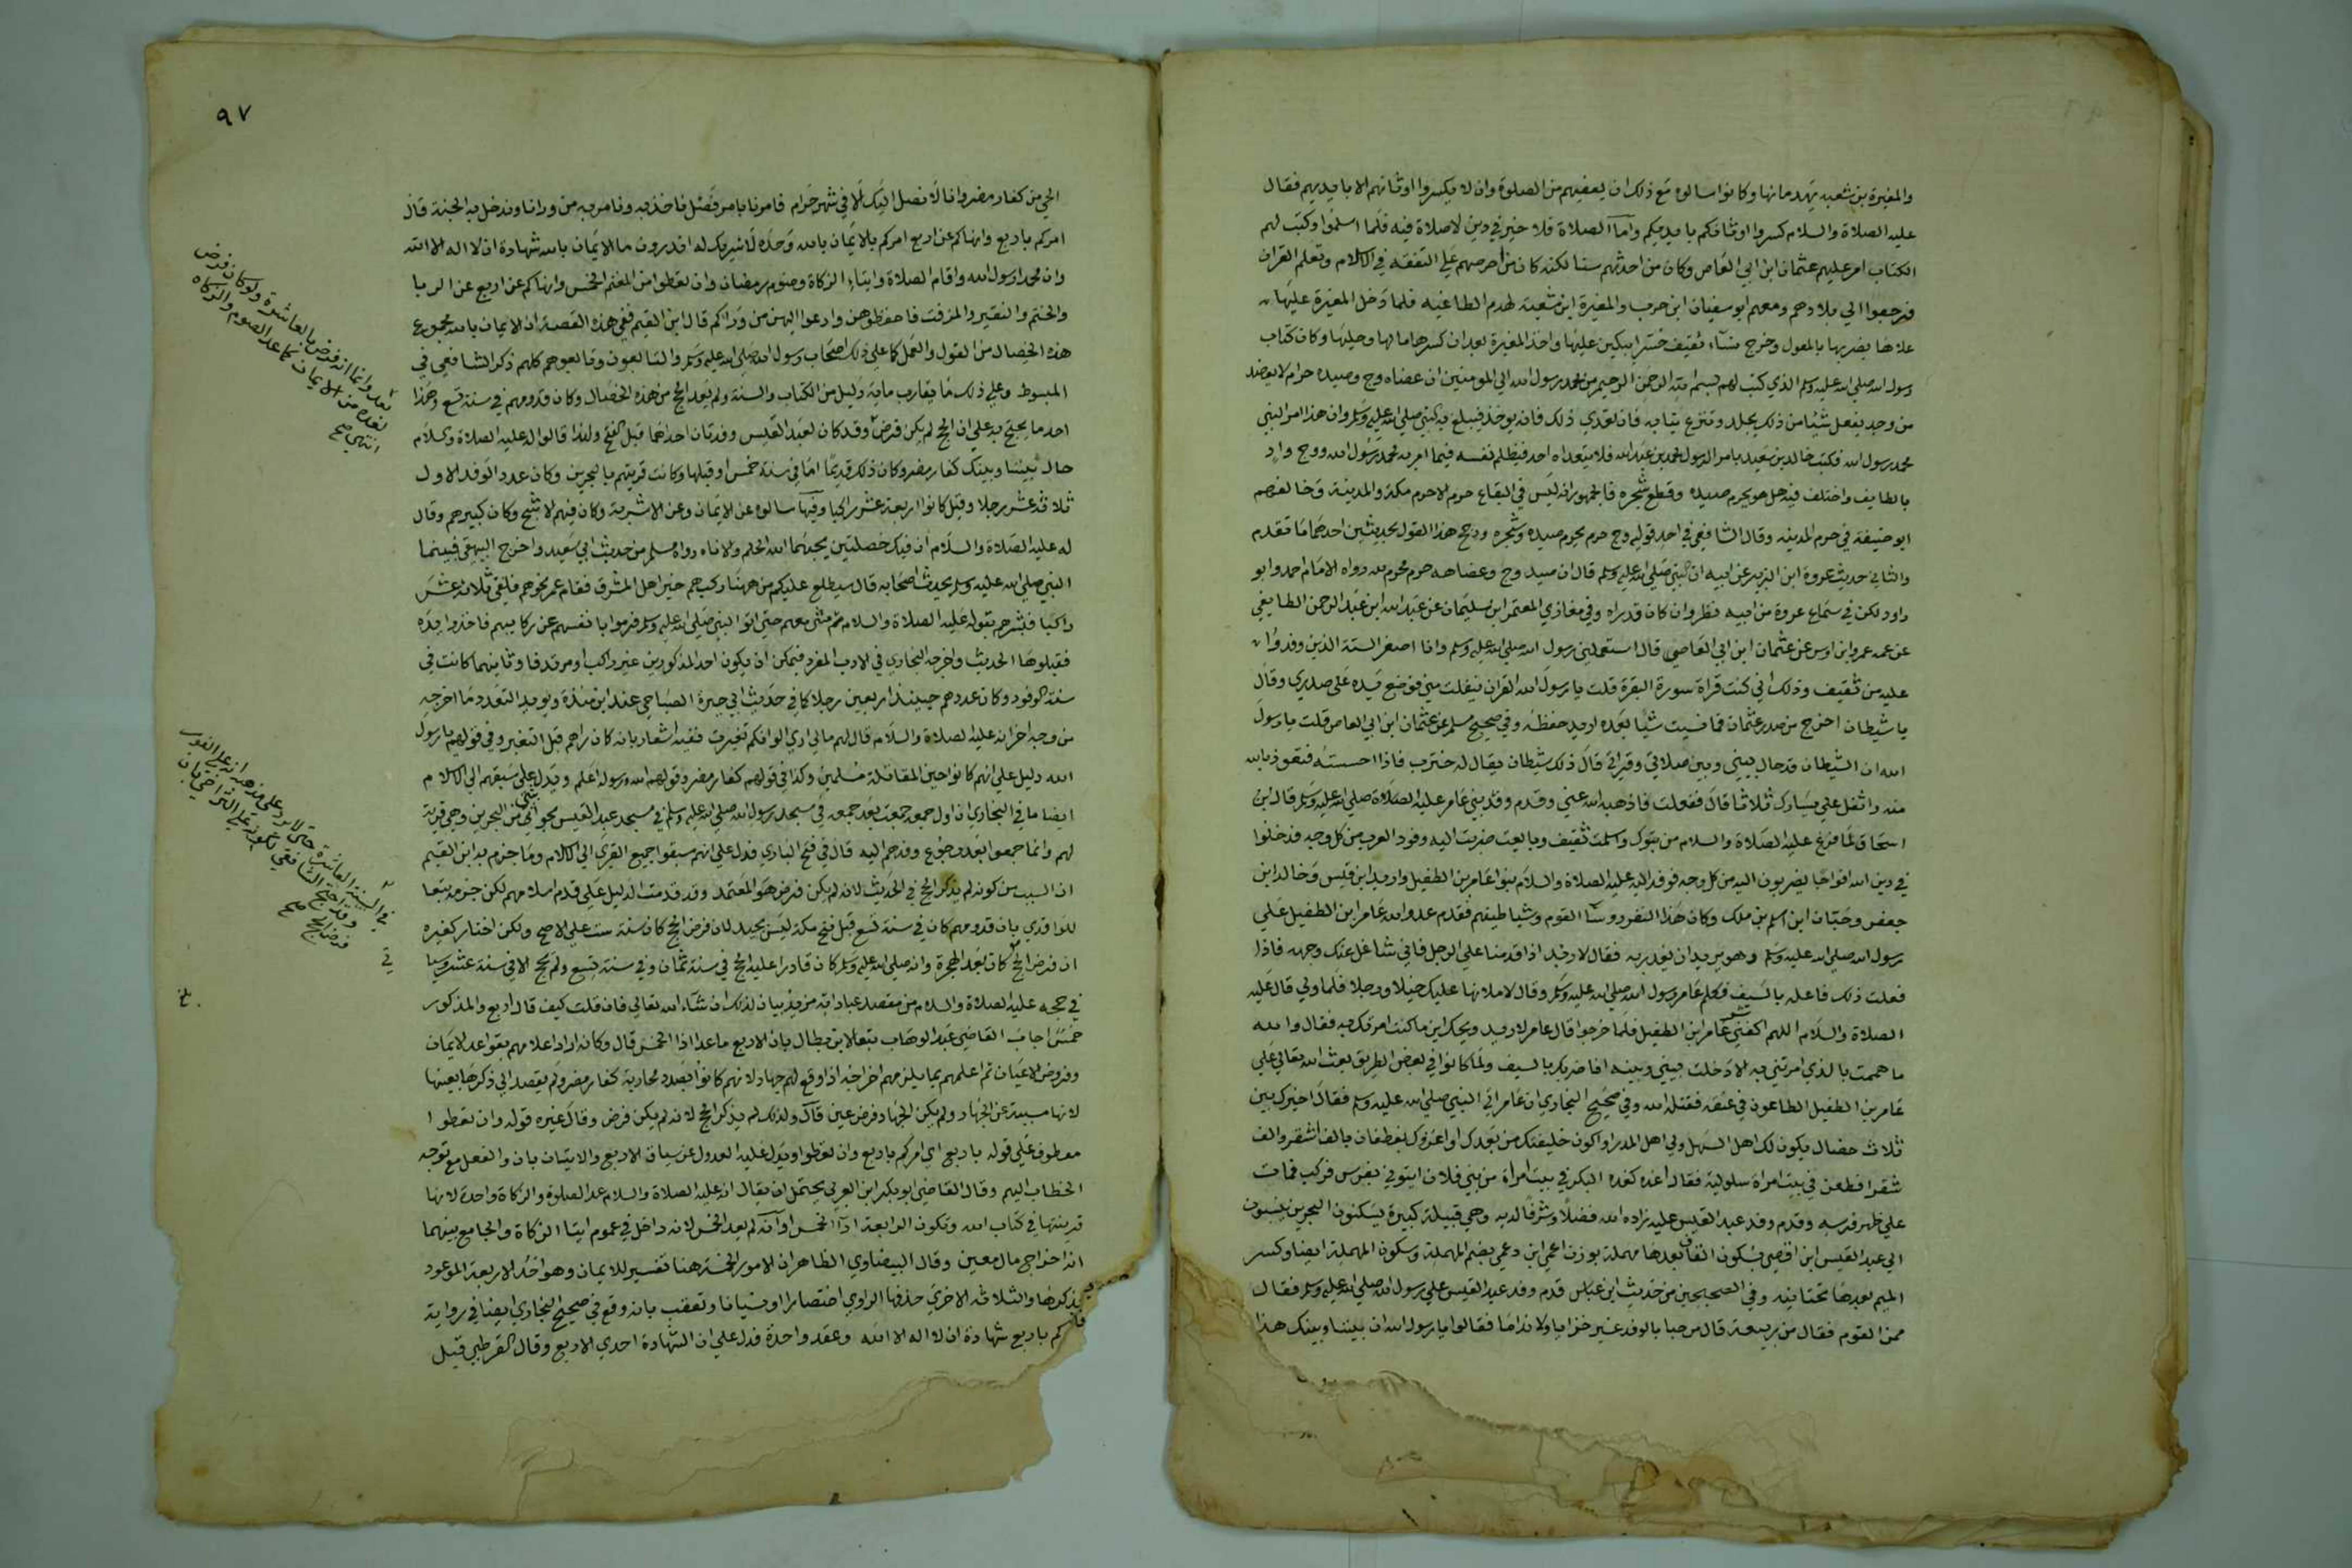 والمغيرة بن شعبه يهدمانها وكانوا سالوه مع ذلك ان يعفيهم من الصلوة وان لا يكسروا اوثانهم الا بايديهم فقال
عليه الصلاة والسلام كسروا اوثانكم بايديكم واما الصلاة فلا خير في دين لا صلاة فيه فلما اسلموا وكتب لهم
الكتاب امر عليهم عثمان ابن ابي العاص وكان من احدثهم سنا لكنه كان من احرصهم علي التفقه في الاسلام وتعلم القران
فرجعوا الي بلادهم ومعهم ابو سفيان ابن حرب والمغيرة ابن شعبة لهدم الطاغيه فلما دخل المغيرة عليها
علاها يضربها بالمعول وخرج نساء ثقيف حسرا يبكين عليها واخذ المغيرة بعد ان كسرها مالها وحليها وكان كتاب
رسول الله صلي الله عليه وسلم الذي كتب لهم بسم الله الرحمن الرحيم من محمد رسول الله الي المومنين ان عضاه وج وصيده حرام لا يعضد
من وجد يفعل شيئا من ذلك يجلد وتنزع ثيابه فان تعدي ذلك فانه يوخذ فيبلغ به النبي صلي الله عليه وسلم وان هذا امر النبي
محمد رسول الله فكتب خالد بن سعيد بامر الرسول محمد بن عبد الله فلا يتعداه احد فيظلم نفسه فيما امر به محمد رسول الله ووج واد
بالطايف واختلف فيه هل هو يحرم صيده وقطع شجره فالجمهور انه ليس في البقاع حرم الا حرم مكة والمدينة وخالفهم
ابو حنيفة في حرم المدينه وقال الشافعي في احد قوليه وج حرم يحرم صيده وشجره ورجح هذا القول بحديثين احدهما ما تقدم
والثاني حديث عروة ابن الزبير عن ابيه ان النبي صلي الله عليه وسلم قال ان صيد وج وعضاهه حرم محرم لله رواه الامام احمد وابو
داود لكن في سماع عروة من ابيه نظر وان كان قد راه وفي مغازي المعتمر ابن سليمان عن عبد الله ابن عبد الرحمن الطايفي
عن عمه عمرو ابن اوس عن عثمان ابن ابي العاصي قال استعملني رسول الله صلي الله عليه وسلم وانا اصغر الستة الذين وفدوا
عليه من ثقيف وذلك اني كنت قراة سورة البقرة قلت يا رسول الله القران ينفلت مني فوضع يده علي صدري وقال
يا شيطان اخرج من صدر عثمان فما نسيت شيا بعده اريد حفظه وفي صحيح مسلم عن عثمان ابن ابي العاص قلت يا رسول
الله ان الشيطان قد حال بيني وبين صلاتي وقراتي قال ذلك شيطان يقال له خنزب فاذا احسسته فتعوذ بالله
منه واتفل علي يسارك ثلاثا قال ففعلت فاذهبه الله عني وقدم وفد بني عامر عليه الصلاة صلي الله عليه وسلم قال ابن
اسحاق لما فرغ عليه الصلاة والسلام من تبوك واسلمت ثقيف وبايعت ضربت اليه وفود العرب من كل وجه فدخلوا
في دين الله افواجا يضربون اليه من كل وجه فوفد اليه عليه الصلاة والسلام بنوا عامر بن الطفيل واربد ابن قيس وخالد ابن
جعفر وحيان ابن اسلم بن ملك وكان هذا النفر روسا القوم وشياطينهم فقدم عدو الله عامر ابن الطفيل علي
رسول الله صلي الله عليه وسلم وهو يريد ان يغدر به فقال لاربد اذا قدمنا علي الرجل فاني شاغل عنك وجهه فاذا
فعلت ذلك فاعله بالسيف فكلم عامر رسول الله صلي الله عليه وسلم وقال لاملانها عليك خيلا ورجلا فلما ولي قال عليه
الصلاة والسلام اللهم اكفني عامر ابن الطفيل فلما خرجوا قال عامر لاربد ويحك اين ما كنت امرتك به فقال والله
ما هممت بالذي امرتني به الا دخلت بيني وبينه افاضربك بالسيف ولما كانوا في بعض الطريق بعث الله تعالي علي
عامر بن الطفيل الطاعون في عنقه فقتله الله وفي صحيح البخاري ان عامر اتي النبي صلي الله عليه وسلم فقال اخيرك بين
ثلاث خصال يكون لك اهل السهل ولي اهل المدر او اكون خليفتك من بعدك او اغزوك بغطفان بالف اشقر والف
شقرا فطعن في بيت امراة سلولية فقال اغده كغده البكر في بيت امراة من بني فلان ايتوني بفرس فركب فمات
علي ظهر فرسه وقدم وفد عبد القيس عليه زاده الله فضلا وشرفا لديه وهي قبيلة كبيرة يسكنون البحرين ينسبون
الي عبد القيس ابن افصي بسكون الفا بعدها مهملة بوزن اعمي ابن دعمي بضم المهملة وسكون المهملة ايضا وكسر
الميم بعدها تحتانيه وفي الصحيحين من حديث ابن عباس قدم وفد عبد القيس علي رسول الله صلي الله عليه وسلم فقال
ممن القوم فقال من ربيعة قال مرحبا بالوفد غير خزايا ولا نداما فقالوا يا رسول الله ان بيننا وبينك هذا
٩٧
الحي من كفار مضر وانا لا نصل اليك الا في شهر حرام فامرنا بامر فصل ناخذ به ونامر به من ورانا وندخل به الجنة قال
امركم باربع وانهاكم عن اربع امركم بالايمان بالله وحده لا شريك له اتدرون ما الايمان بالله شهادة ان لا اله الا الله
وان محمدا رسول الله واقام الصلاة وايتاء الزكاة وصوم رمضان وان تعطوا من المغنم الخمس وانهاكم عن اربع عن الدبا
والحنتم والنقير والمزفت فاحفظوهن وادعوا اليهن من وراكم قال ابن القيم ففي هذه القصة ان الايمان بالله مجموع
هذه الخصال من القول والعمل كما علي ذلك اصحاب رسول الله صلي الله عليه وسلم والتابعون وتابعوهم كلهم ذكر الشافعي في
المبسوط وعلي ذلك ما يقارب ماية دليل من الكتاب والسنة ولم يعد الحج من هذه الخصال وكان قدومهم في سنة تسع وهذا
احد ما يحتج به علي ان الحج لم يكن فرض وقد كان لعبد القيس وفدتان احداهما قبل الفتح ولهذا قالوا له عليه الصلاة والسلام
حال بيننا وبينك كفار مضر وكان ذلك قديما اما في سنة خمس او قبلها وكانت قريتهم بالبحرين وكان عدد الوفد الاول
ثلاثة عشر رجلا وقيل كانوا اربعة عشر راكبا وفيها سالوه عن الايمان وعن الاشربة وكان فيهم الاشج وكان كبيرهم وقال
له عليه الصلاة والسلام ان فيك خصلتين يحبهما الله الحلم والاناه رواه مسلم من حديث ابي سعيد واخرج البيهقي فبينما
النبي صلي الله عليه وسلم يحدث اصحابه قال سيطلع عليكم من ههنا ركب هم خير اهل المشرق فقام عمر نحوهم فلقي ثلاثة عشر
راكبا فبشرهم بقوله عليه الصلاة والسلام ثم مشي معهم حتي اتوا النبي صلي الله عليه وسلم فرموا بانفسهم عن ركايبهم فاخذوا يده
فقبلوها الحديث واخرجه البخاري في الادب المفرد فيمكن ان يكون احد المذكورين غير راكب او مرتدفا وثانيهما كانت في
سنة الوفود وكان عددهم حينيذ اربعين رجلا كما في حديث ابي حيرة الصباحي عند ابن منده ويويد التعدد ما اخرجه
من وجه اخر انه عليه الصلاة والسلام قال لهم مالي اري الوانكم تغيرت ففيه اشعار بانه كان راهم قبل التغير وفي قولهم يا رسول
الله دليل علي انهم كانوا حين المقابلة مسلمين وكذا في قولهم كفار مضر وقولهم الله ورسوله اعلم ويدل علي سبقهم الي الاسلام
ايضا ما في البخاري ان اول جمعة جمعت بعد جمعه في مسجد رسول الله صلي الله عليه وسلم في مسجد عبد القيس بجواثي من البحرين وهي قرية
لهم وانما جمعوا بعد رجوع وفدهم اليه قال في فتح الباري فدل علي انهم سبقوا جميع القري الي الاسلام وما جزم به ابن القيم
ان السبب من كونه لم يذكر الحج في الحديث لانه لم يكن فرض هو المعتمد وقد قدمت الدليل علي قدم اسلامهم لكن جزمه تبعا
للواقدي بان قدومهم كان في سنة تسع قبل فتح مكة ليس بجيد لان فرض الحج كان سنة ست علي الاصح ولكن اختار كغيره
ان فرض الحج كان بعد الهجرة وانه صلي الله عليه وسلم كان قادرا عليه الحج في سنة ثمان وفي سنة تسع ولم يحج الا في سنة عشر وسيا
في حجه عليه الصلاة والسلام من مقصد عباداته مزيد بيان لذلك ان شاء الله تعالي فان قلت كيف قال اربع والمذكور
خمس اجاب القاضي عبد الوهاب تبعا لابن بطال بان الاربع ما عدا اذا الخمس قال وكانه اراد اعلامهم بقواعد الايمان
وفروض الاعيان ثم اعلمهم بما يلزمهم اخراجه اذا وقع لهم جهاد لانهم كانوا بصدد محاربة كفار مضر ولم يقصد الي ذكرها بعينها
لانها مسببة عن الجهاد ولم يكن الجهاد فرض عين قال ولذلك لم يذكر الحج لانه لم يكن فرض وقال غيره قوله وان تعطوا
معطوف علي قوله باربع اي امركم باربع وان تعطوا ويدل عليه العدول عن سياق الاربع والاتيان بان والفعل مع توجه
الخطاب اليهم وقال القاضي ابو بكر ابن العربي يحتمل ان يقال انه عليه الصلاة والسلام عد الصلوة والزكاة واحدة لانها
قرينتها في كتاب الله وتكون الرابعة ادا الخمس او انه لم يعد الخمس لانه داخل في عموم ايتا الزكاة والجامع بينهما
انه اخراج مال معين وقال البيضاوي الظاهر ان الامور الخمسة هنا تفسير للايمان وهو احد الاربعة الموعود
بذكرها والثلاثة الاخري حذفها الراوي اختصارا او نسيانا وتعقب بانه وقع في صحيح البخاري ايضا في رواية
كم باربع شهادة ان لا اله الا الله وعقد واحدة فدل علي ان الشهادة احدي الاربع وقال القرطبي قيل
بعد وانما انه فرض بالعاشرة ولو كان فرض
لعده من الايمان كما عد الصوم والزكاة
انتهي صح
في السنة العاشرة